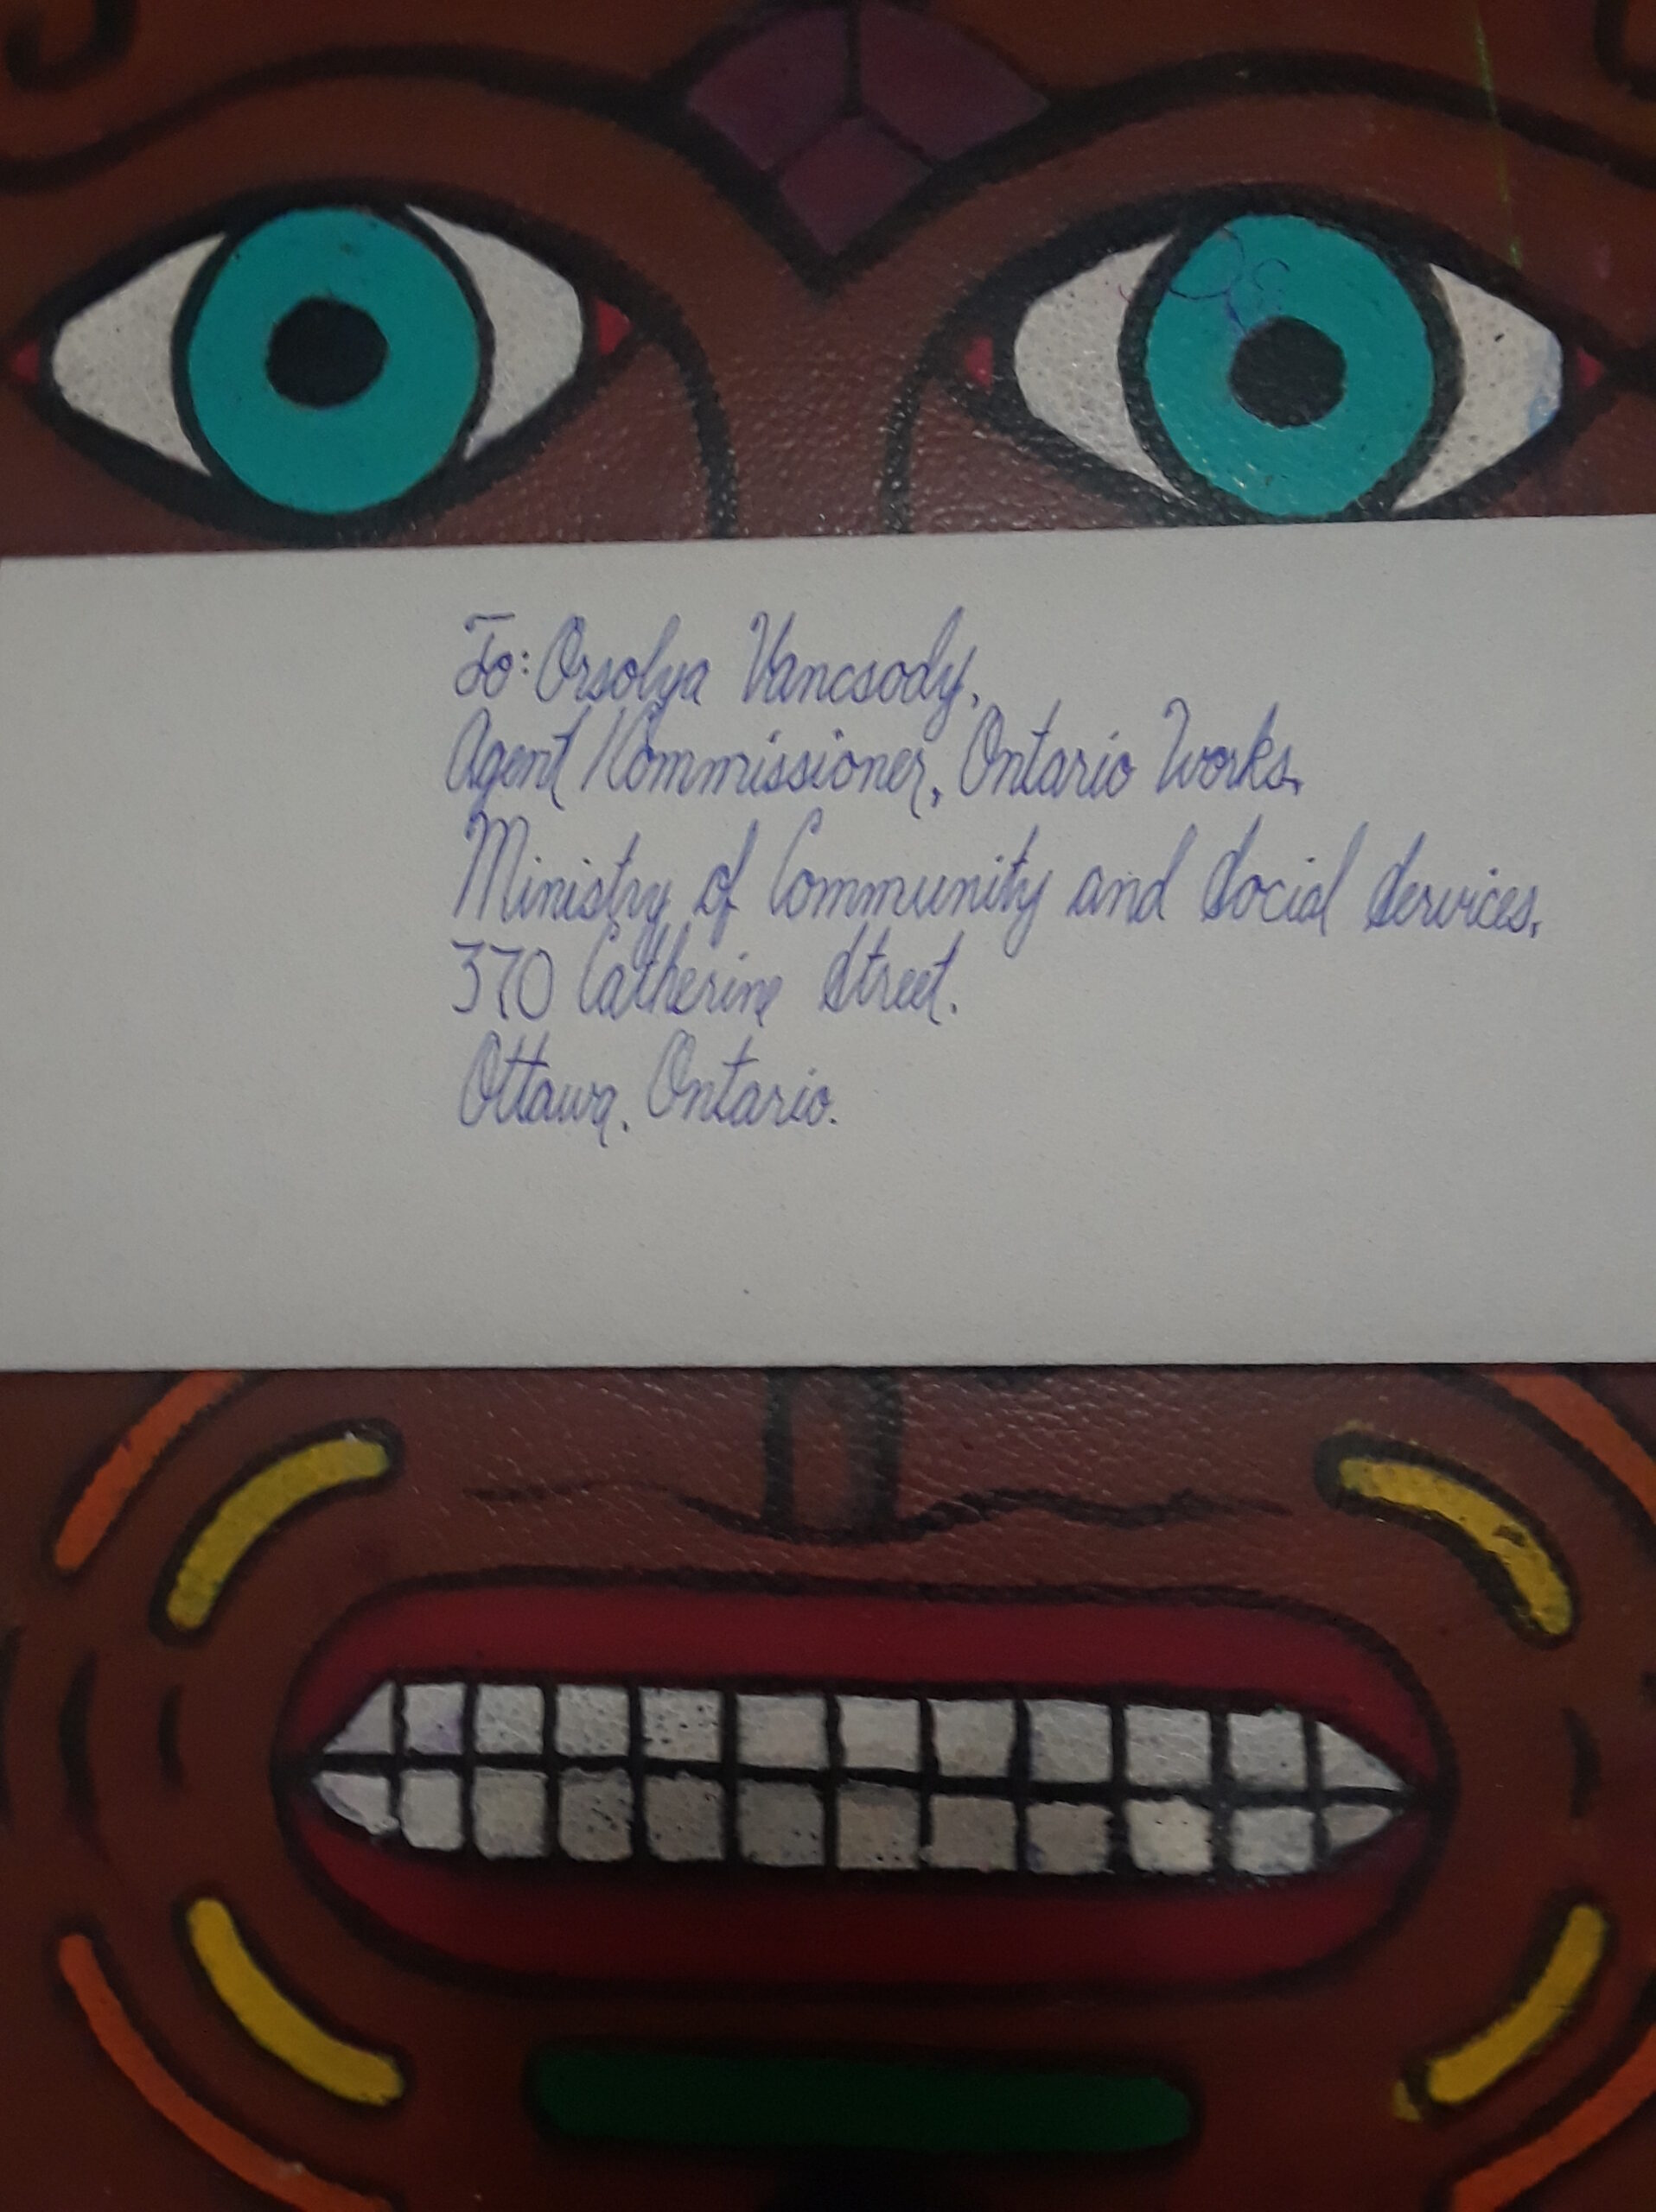 To: Orsolya Vancsody,
Agent/Kommissioner, Ontario Works,
Ministry of Community and Social Services,
370 Catherine Street.
Ottawa, Ontario.